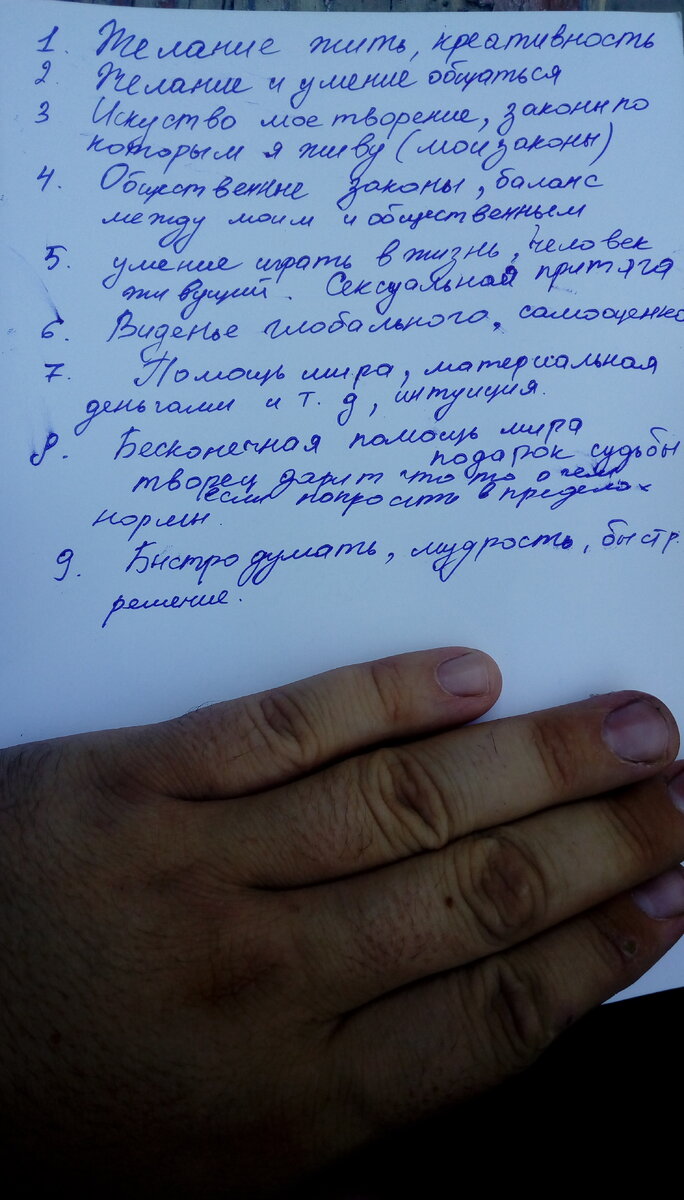 1. Желание жить, креативность
2. Желание и умение общаться
3 Искуство мое творение, законы по
которым я живу (мои законы)
4. Общественные законы, баланс
между моим и общественным
5. умение играть в жизнь, человек
живущий. Сексуальная притяга
6. Виденье глобального, самооценка
7. Помощь мира, материальная
деньгами и т. д, интуиция.
8. Бесконечная помощь мира
подарок судьбы
творец дарит что то о чем
если попросить в пределах
нормы.
9. Быстро думать, мудрость, быстр.
решение.